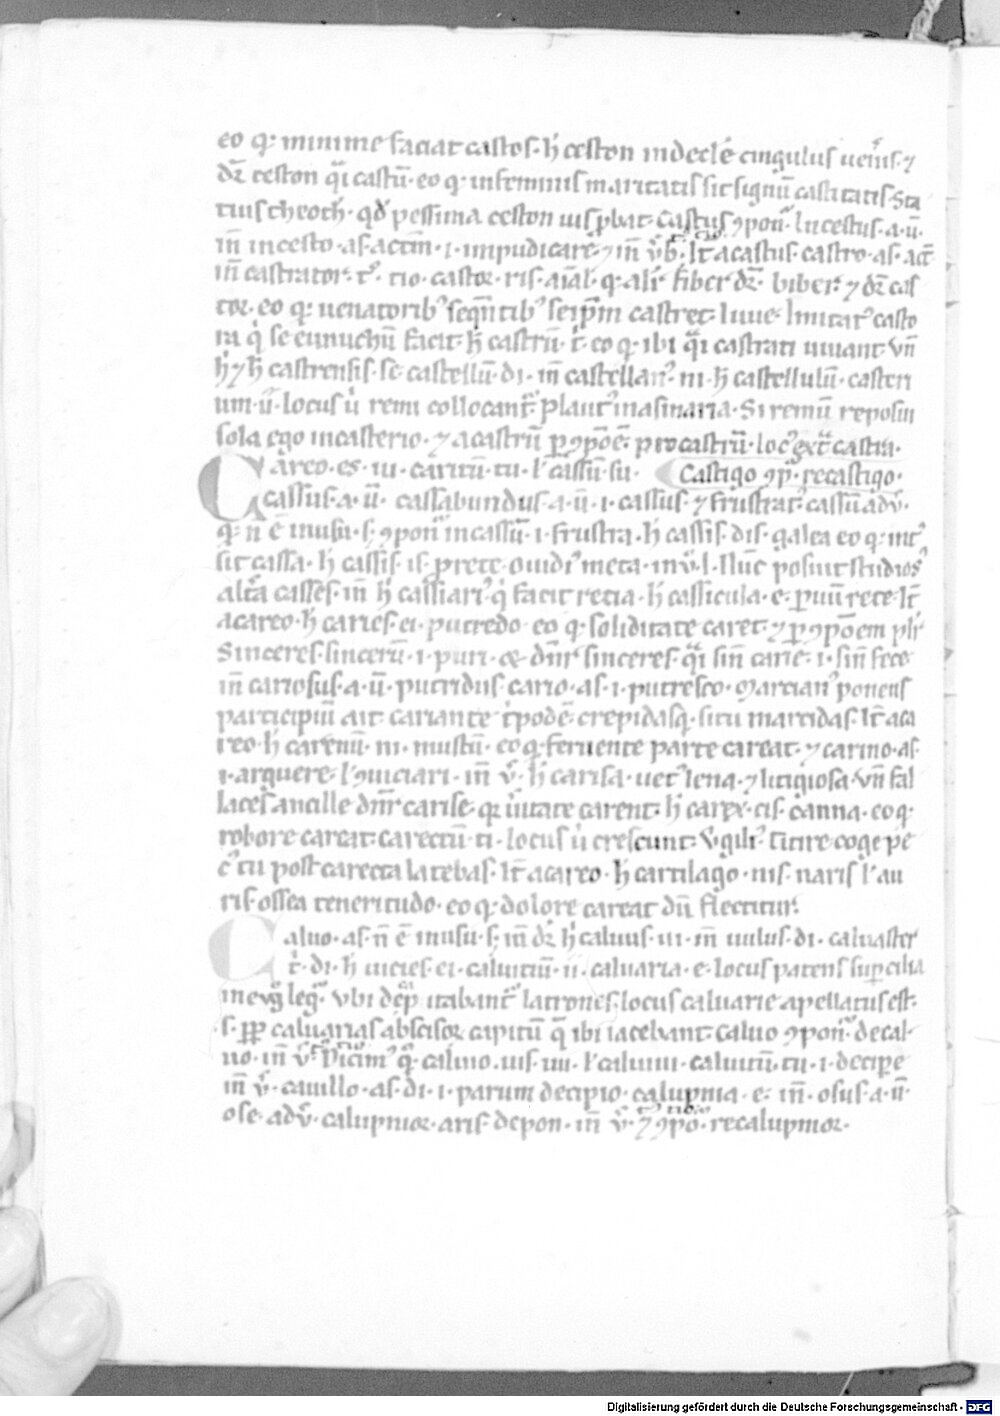 eo q· minime faciat castos· h̄ ceston indecl̄e cingulus uen̄is· ⁊
dr̄ ceston q̄i castū· eo q· in feminis maritatis sit signū castitatis· Sta
tius theoch̄· qd̄ pessima ceston ius ꝓbat· Castus ꝯpon̄· Incestus· a· ū·
in̄ incesto· as· actm̄· i· impudicare· ⁊ in̄ v̄b· It̄ a castus castro· as· act̄
in̄ castrator· t᷒· tio· castor· ris· aīal· q· ali᷒ fiber dr̄· biber· ⁊ dr̄ cas
tor· eo q· uenatorib᷒ seq̄ntib᷒ seip̄m castret· Iuue· Imitat᷒ casto
ra q̇ se eunuchū facit· h̄ castrū· t̄· eo q· ibi q̄i castrati uiuant· vn̄
h̄ ⁊ h̄ castrensis· se· castellū· di· in̄ castellan᷒· ni· h̄ castellulū· casteri
um· ii· locus u̇ remi collocant᷒· Plaut᷒ in asinaria· Si remū reposiui
sola ego in casterio· ⁊ a castrū ꝑ ꝯpōe· procastrū· loc᷒ ext̄ castra·
Careo· es· ui· caritū· tu· l᷒ cassū· su· Castigo ꝯp̄· recastigo·
cassus· a· ū· cassabundus· a· ū· i· cassus· ⁊ frustrat᷒· cassū adv̄·
q· n̄ ē in usu· s; ꝯpon᷒ incassū· i· frustra· h̄ cassis· dis· galea eo q· int᷒
sit cassa· h̄ cassis· is· ꝓ rete· ouidi᷒ meta· in· v̄· l· Nūc posuit studios᷒
alt̄a casses· in̄ h̄ cassiari᷒ q̇ facit recia· h̄ cassicula· e· ꝑuū rete· It̄
a careo· h̄ caries· ei· putredo· eo q· soliditate caret· ⁊ ꝑ ꝯpōem pl̄r
Sinceres· sincerū· i· puri· ⁊ dn̄r sinceres· q̄i sin̄ carie· i· sin̄ fece
in̄ cariosus· a· ū· putridus· cario· as· i· putresco· Marcian᷒ ponens
participiū ait cariante crepidasq̄· situ marcidas· It̄ a ca
reo· h̄ carenū· ni· mustū· eo q· feruente parte careat· ⁊ carino· as·
i· arguere· l᷒ ꝯuiciari· in̄ v̄· h̄ carisa· uet᷒ lena· ⁊ litigiosa· vn̄ fal
laces ancille dn̄r carise· qr u̇itate carent· h̄ carex· cis· canna· eo q·
robore careat· carectū· ti· locus u̇ crescunt· v̇gili᷒· titire coge pe
c᷒ tu post carecta latebas· It̄ a careo· h̄ cartilago· nis· naris l᷒ au
ris· ossea teneritudo· eo q· dolore careat dū flectitur·
Caluo· as· n̄ ē in usu· s; in̄ dr̄ h̄ caluus· ui· in̄ uulus· di· caluaster
t̄· di· h̄ uicies· ei· caluitiū· ii· caluaria· e· locus patens suꝑ cilia
in evg̃ leg᷒· vbi dep̄itabant᷒ latrones· locus caluarie apellatus est·
s· ꝓp̄ caluarias abscisor᷒ capitū q̄ ibi iacebant· caluo ꝯpon᷒· decal
uo· in̄ v̄· calujo· uis· ui· l᷒ caluiui· caluitū· tu· i· decipe
in̄ v̄· cauillo· as· di· i· parum decipio· calupnia· e· in̄· osus· a· ū·
ose· adv̄· calupnior· aris· depon· in̄ v̄· ⁊ ꝯpo᷒· recalupnior·
Digitalisierung gefördert durch die Deutsche Forschungsgemeinschaft - DFG